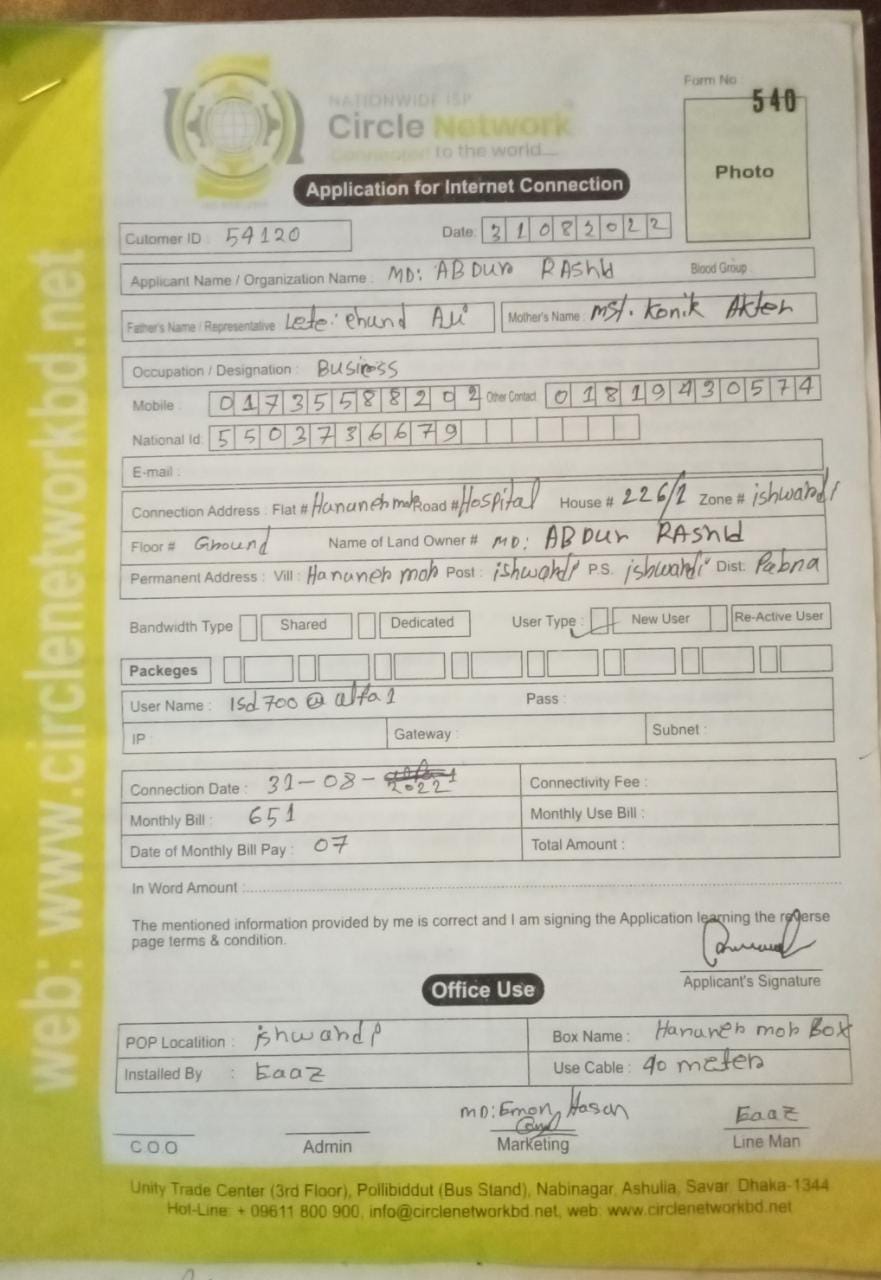 Form No
540
NATIONWIDE ISP
Circle Network
Connected to the world....
Photo
Application for Internet Connection
Cutomer ID : 54120
Date: 31082022
Applicant Name / Organization Name : MD: ABDur RAshId
Blood Group
Father's Name / Representative Lete: chund Ali
Mother's Name : Mst. Konik Akter
Occupation / Designation : Business
Mobile : 01735588202 Other Contact 01819430574
National Id: 5503736679
E-mail :
Connection Address : Flat # Road # Hospital House # 226/1 Zone # ishwardi
Floor # Ground Name of Land Owner # MD: ABDur RAshId
Permanent Address : Vill : Post : ishwardi P.S. ishwardi Dist: Pabna
Bandwidth Type Shared Dedicated User Type : New User Re-Active User
Packeges
User Name : Isd700@alfa1 Pass :
IP : Gateway : Subnet :
Connection Date : 31-08-2022 Connectivity Fee :
Monthly Bill : 651 Monthly Use Bill :
Date of Monthly Bill Pay : 07 Total Amount :
In Word Amount :
The mentioned information provided by me is correct and I am signing the Application learning the reverse
page terms & condition.
Applicant's Signature
Office Use
POP Locatition : ishwardi Box Name : Box
Installed By : Eaaz Use Cable : 40 meter
MD: Emon Hasan Eaaz
C.O.O Admin Marketing Line Man
Unity Trade Center (3rd Floor), Pollibiddut (Bus Stand), Nabinagar, Ashulia, Savar, Dhaka-1344
Hot-Line: + 09611 800 900, info@circlenetworkbd.net, web: www.circlenetworkbd.net
web: www.circlenetworkbd.net